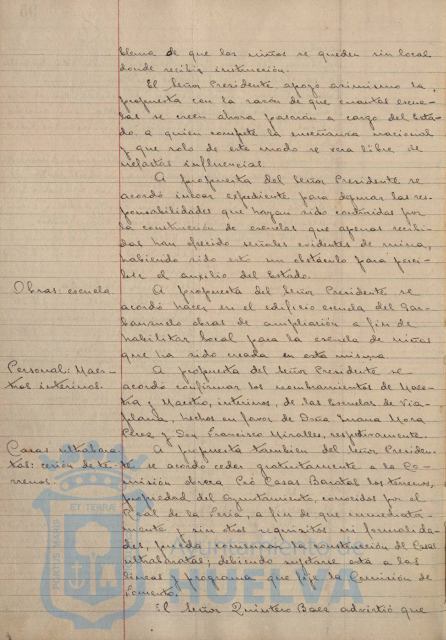 blema de que los niños se queden sin local
donde recibir instrucción.
El Señor Presidente apoyó asimismo la
propuesta con la razón de que cuantas escue-
las se creen ahora pasarán a cargo del Esta-
do, a quien compete la enseñanza nacional
y que solo de este modo se verá libre de
nefastas influencias.
A propuesta del Señor Presidente se
acordó incoar expediente para depurar las res-
ponsabilidades que hayan sido contraidas por
la construcción de escuelas que apenas recibi-
das han ofrecido señales evidentes de ruina,
habiendo sido esto un obstáculo para perci-
bir el auxilio del Estado.
Obras: escuela
A propuesta del Señor Presidente se
acordó hacer en el edificio escuela del Gar-
banzuelo obras de ampliación a fin de
habilitar local para la escuela de niñas
que ha sido creada en esta misma
Personal: Maes-
tros interinos.
A propuesta del Señor Presidente se
acordó confirmar los nombramientos de Maes-
tra y Maestro, interinos, de las Escuelas de Via-
plana, hechos en favor de Doña Juana Mora
y Don Francisco Miralles, respectivamente.
Casas ultrabara-
tas: cesión de te-
rrenos:
A propuesta también del Señor Presiden-
te, se acordó ceder gratuitamente a la Co-
misión obrera Pró Casas Baratas los terrenos,
propiedad del Ayuntamiento, conocidos por el
Real de la Feria, a fin de que inmediata-
mente y sin otros requisitos ni formalida-
des, pueda comenzar la construcción de Casas
ultrabaratas; debiendo sujetarse esta a las
lineas y programa que fije la Comisión de
Fomento.
El Señor Quintero Baez advirtió que
PORTUS MARIS ET TERRAE
Ayuntamiento de
HUELVA